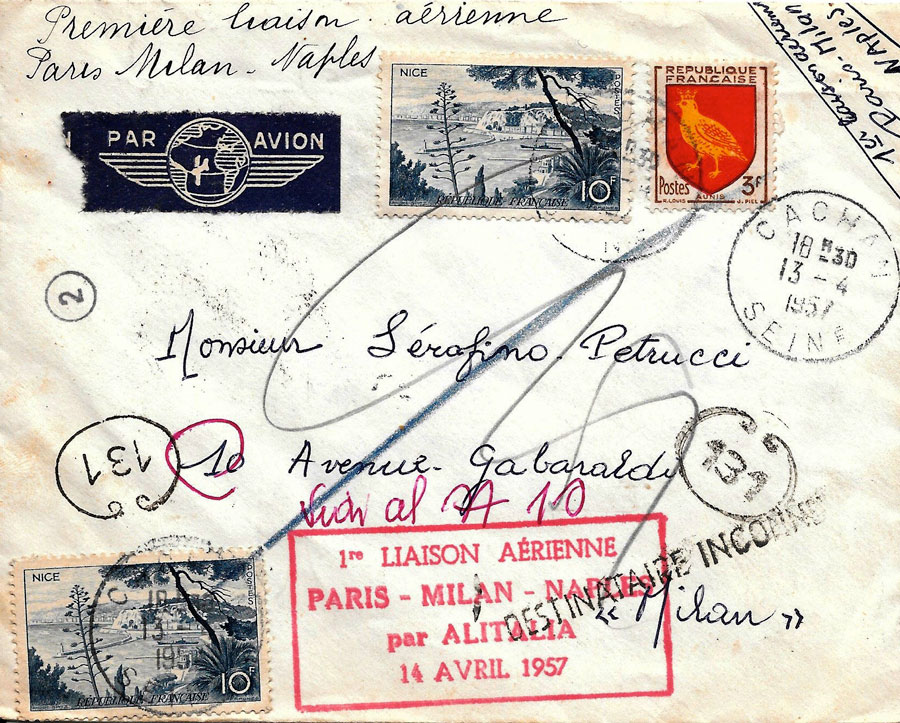 Première liaison aérienne
Paris Milan - Naples
1er liaison aérienne
Paris-Milan
Naples
PAR AVION
NICE
POSTES
10F
RÉPUBLIQUE FRANÇAISE
REPUBLIQUE
FRANÇAISE
Postes 3F
AUNIS
R.LOUIS J. PIEL
CACHAN
18 H30
13 - 4
1957
SEINE
2
Monsieur Sérafino Petrucci
131
10 Avenue Gabaraldi
al 10
131
1re LIAISON AÉRIENNE
PARIS - MILAN - NAPLES
par ALITALIA
14 AVRIL 1957
DESTINATAIRE INCONNU
« Milan »
NICE
POSTES
10F
RÉPUBLIQUE FRANÇAISE
1957